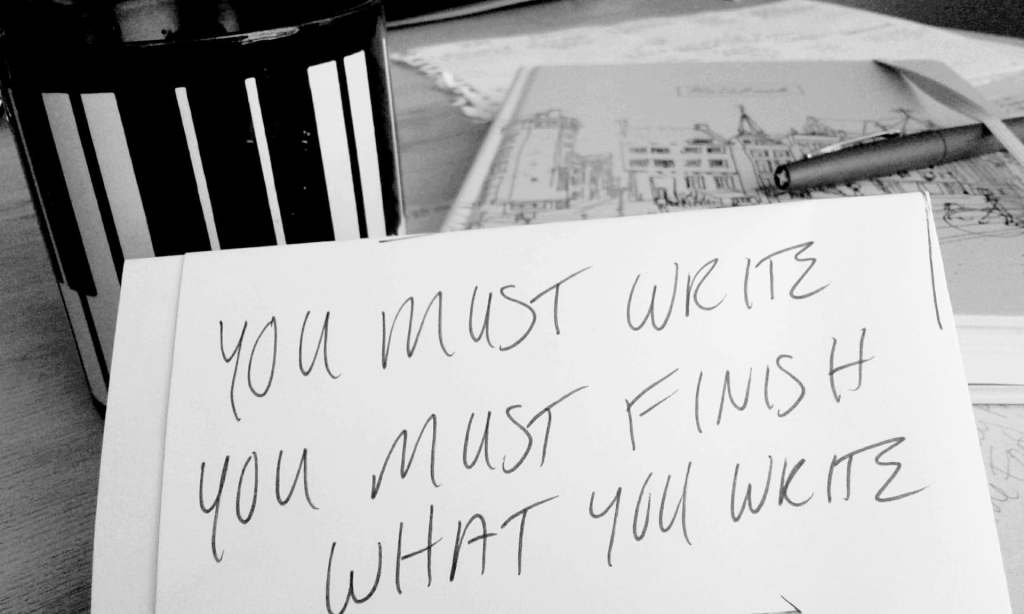 YOU MUST WRITE
YOU MUST FINISH
WHAT YOU WRITE